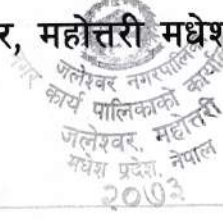 र, महोत्तरी मधेश
जलेश्वर नगरपालिका
नगर कार्य पालिकाको कार्यालय
जलेश्वर, महोत्तरी
मधेश प्रदेश, नेपाल
२०७३